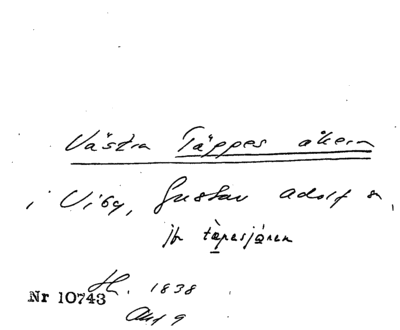 Västra Täppes åkern
i Viby, Gustav Adolf s.
jfr
Nr 10743 H. 1838
Akt 9